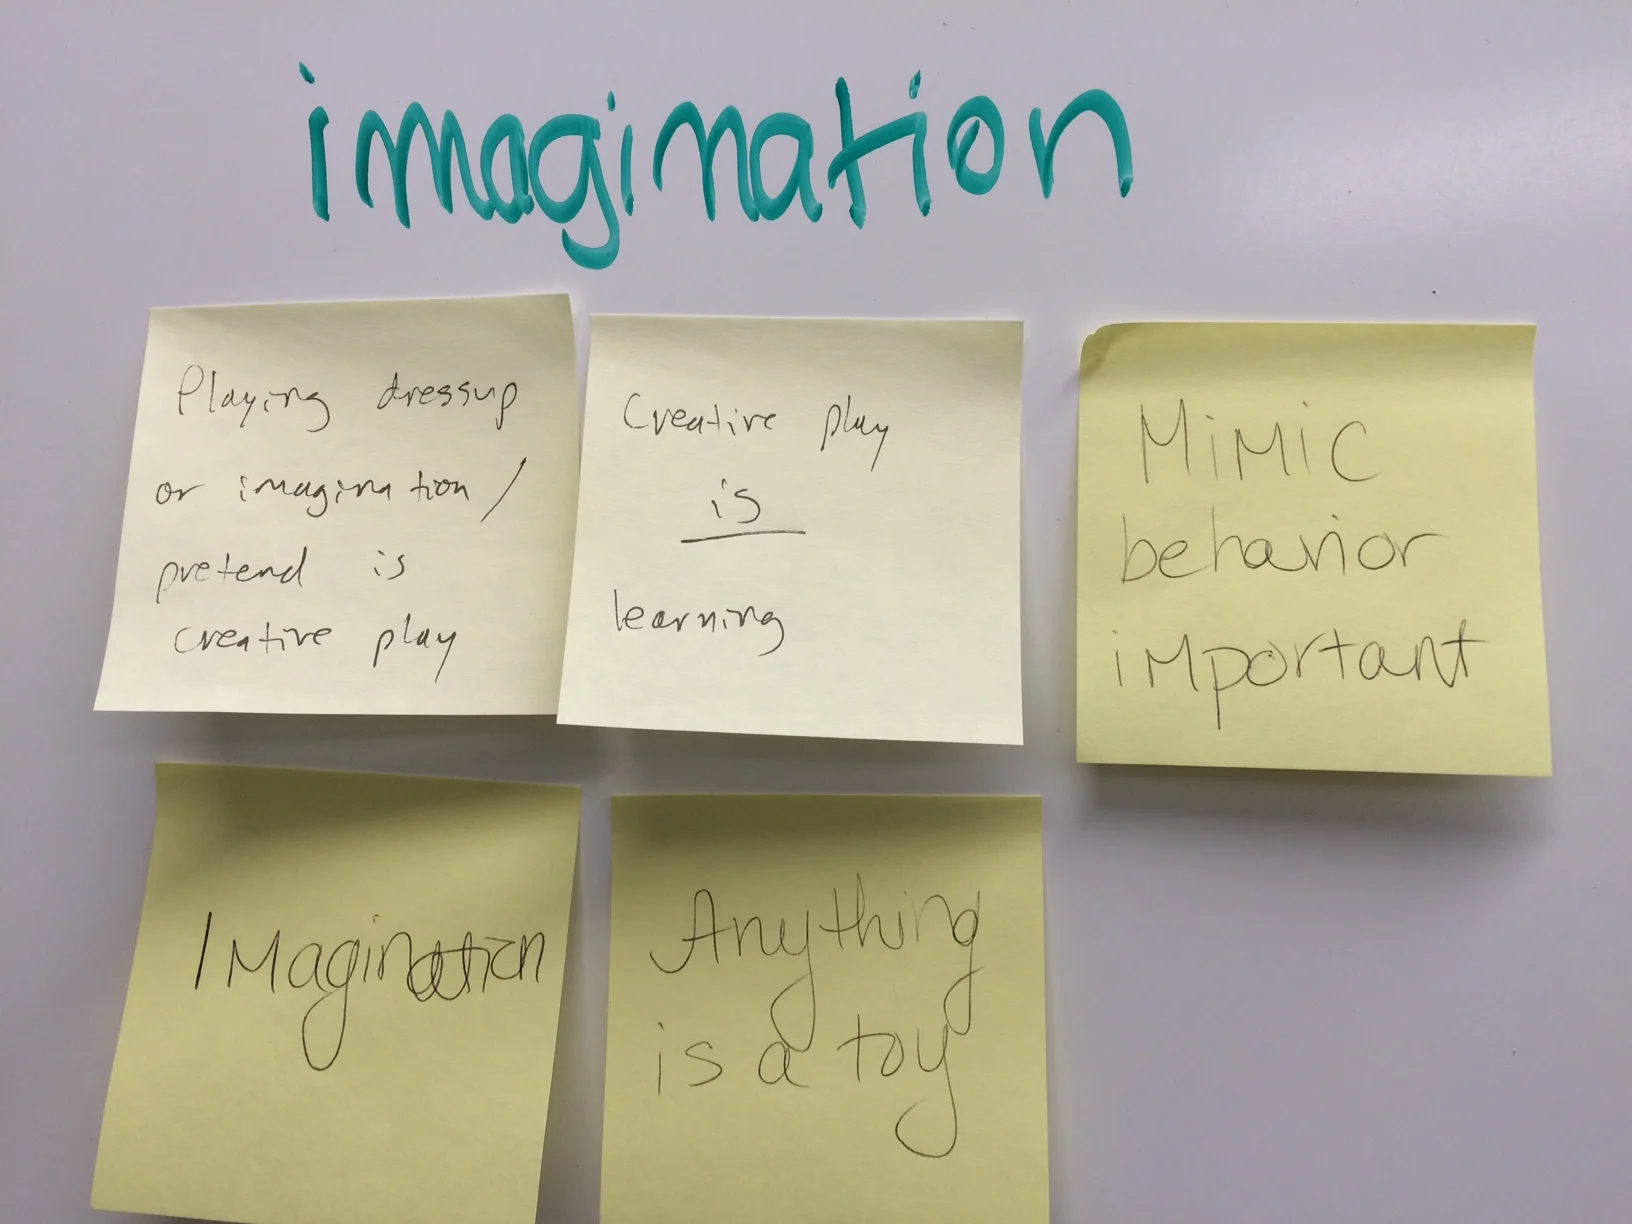 imagination
Playing dressup
or imagination/
pretend is
creative play
Creative play
is
learning
Mimic
behavior
important
Imagination
Anything
is a toy